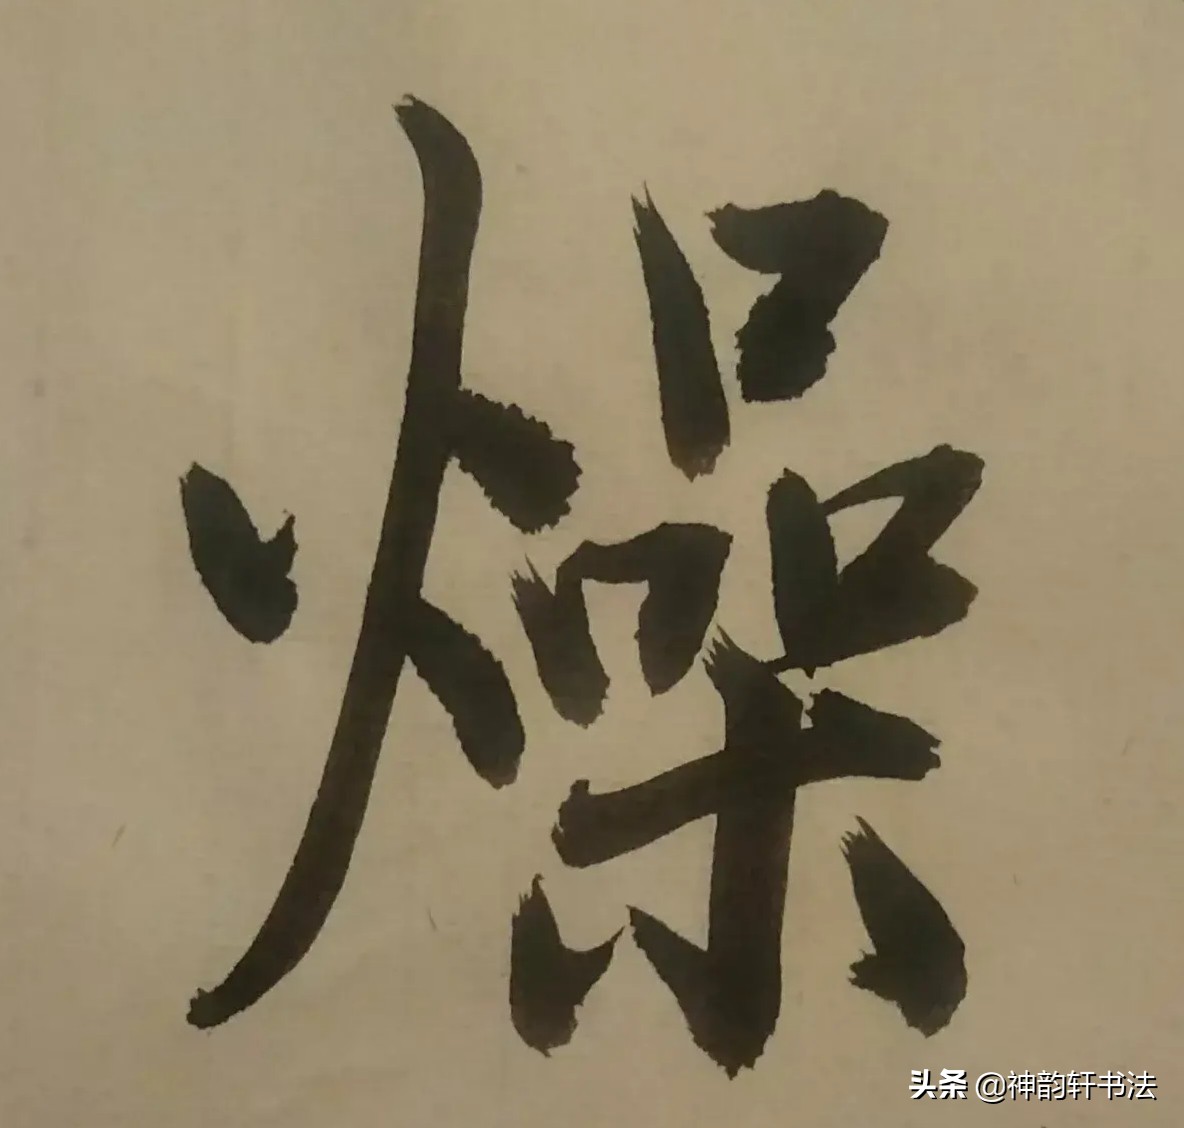 燥
头条 @神韵轩书法